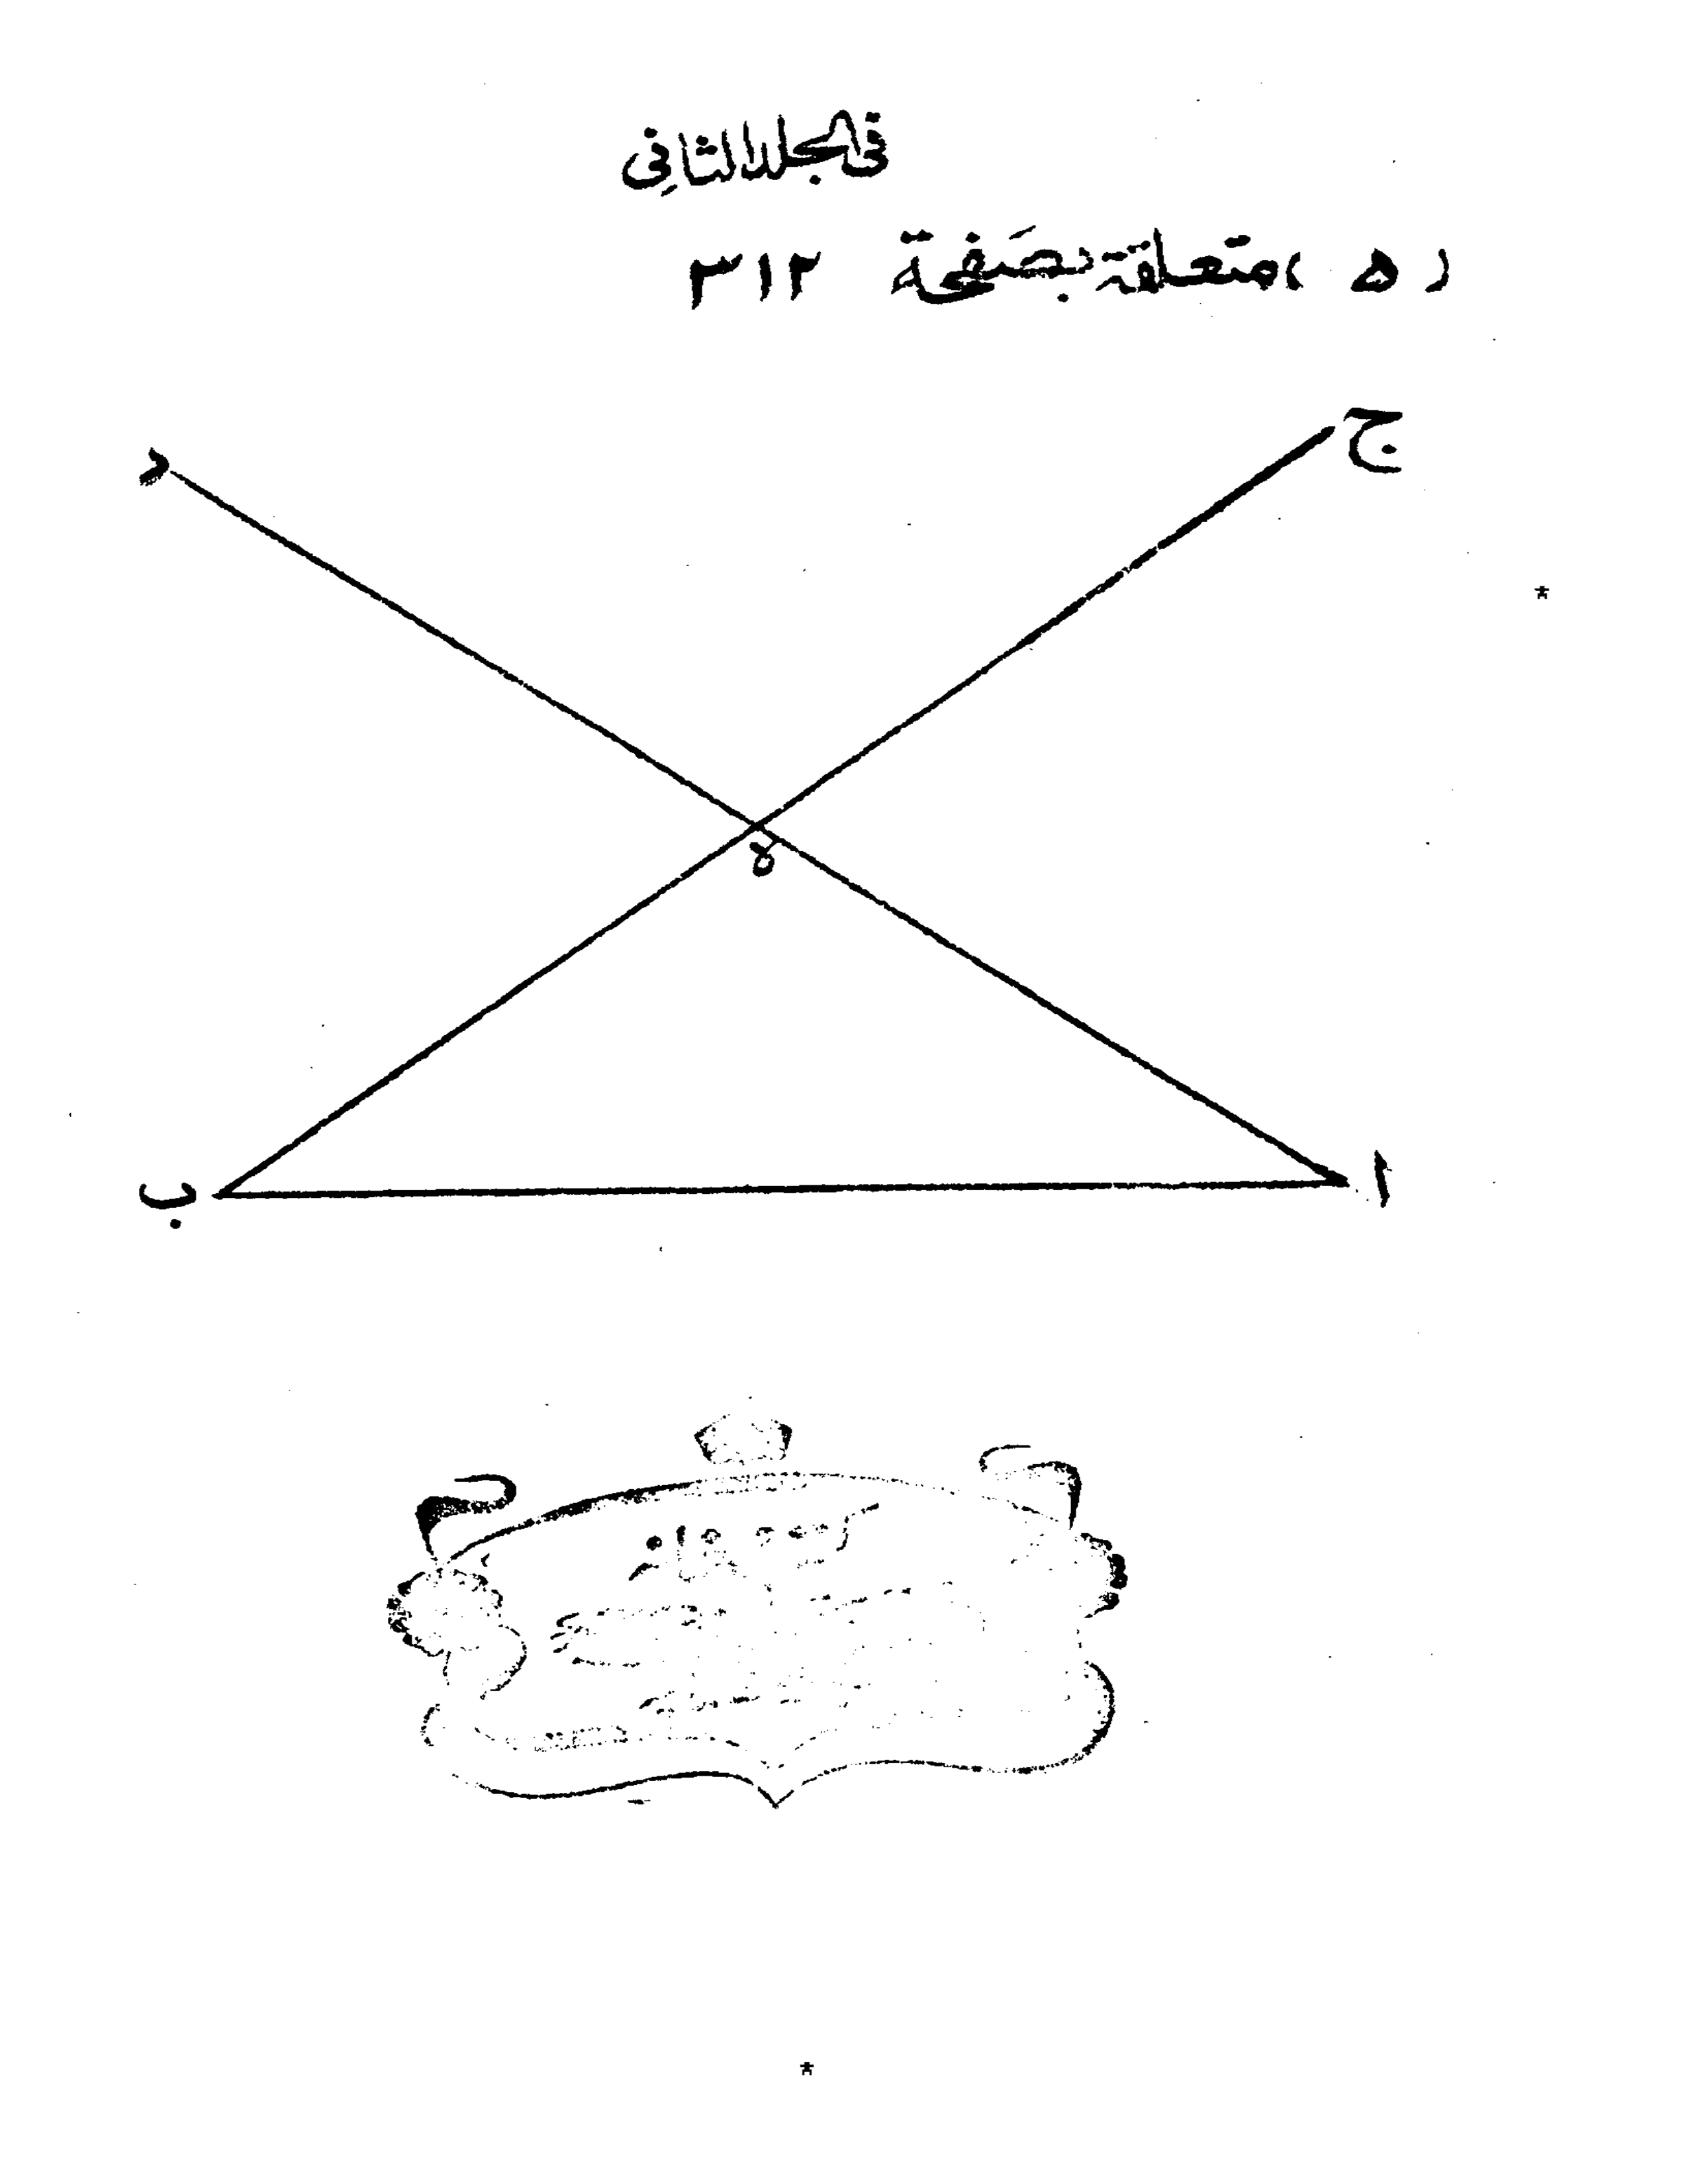 في المجلد الثاني
(٥) متعلقة بصَفحة ٣١٢
ج
د
*
ه
ا
ب
*